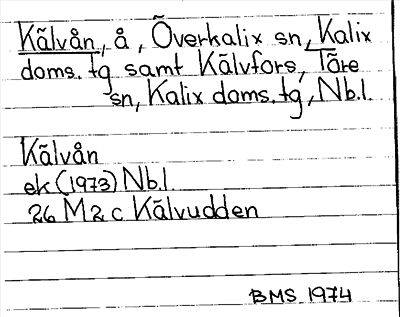 Kälvån, å, Överkalix sn, Kalix
doms. tg samt Kälvfors, Töre
sn, Kalix doms. tg, Nb.l.
Kälvån
ek (1973) Nb.l.
26 M 2 c Kälvudden
BMS 1974